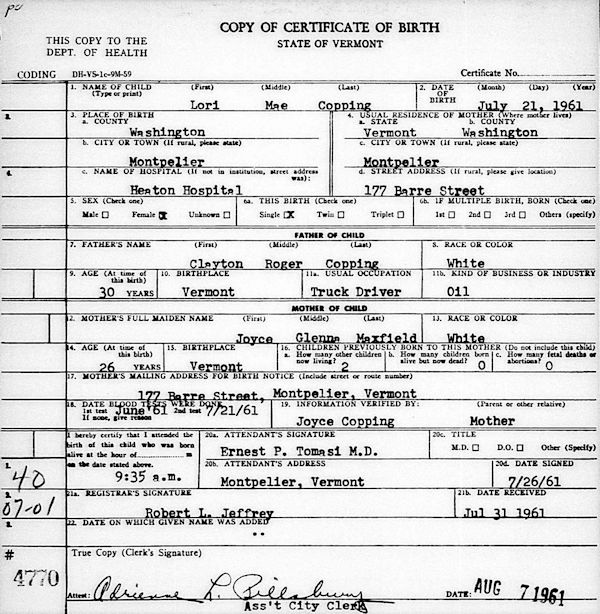 po
COPY OF CERTIFICATE OF BIRTH
STATE OF VERMONT
THIS COPY TO THE
DEPT. OF HEALTH
CODING DH-VS-1c-9M-59 Certificate No.
1. NAME OF CHILD (First) (Middle) (Last) 2. DATE OF BIRTH (Month) (Day) (Year)
(Type or print)
Lori Mae Copping July 21, 1961
3. PLACE OF BIRTH 4. USUAL RESIDENCE OF MOTHER (Where mother lives)
a. COUNTY a. STATE b. COUNTY
Washington Vermont Washington
b. CITY OR TOWN (If rural, please state) c. CITY OR TOWN (If rural, please state)
Montpelier Montpelier
c. NAME OF HOSPITAL (If not in institution, street address was): d. STREET ADDRESS (If rural, please give location)
Heaton Hospital 177 Barre Street
5. SEX (Check one) 6a. THIS BIRTH (Check one) 6b. IF MULTIPLE BIRTH, BORN (Check one)
Male Female X Unknown Single X Twin Triplet 1st 2nd 3rd Others (specify)
FATHER OF CHILD
7. FATHER'S NAME (First) (Middle) (Last) 8. RACE OR COLOR
Clayton Roger Copping White
9. AGE (At time of this birth) 10. BIRTHPLACE 11a. USUAL OCCUPATION 11b. KIND OF BUSINESS OR INDUSTRY
30 YEARS Vermont Truck Driver Oil
MOTHER OF CHILD
12. MOTHER'S FULL MAIDEN NAME (First) (Middle) (Last) 13. RACE OR COLOR
Joyce Glenna Maxfield White
14. AGE (At time of this birth) 15. BIRTHPLACE 16. CHILDREN PREVIOUSLY BORN TO THIS MOTHER (Do not include this child)
a. How many other children now living? b. How many children born alive but now dead? c. How many fetal deaths or abortions?
26 YEARS Vermont 2 0 0
17. MOTHER'S MAILING ADDRESS FOR BIRTH NOTICE (Include street or route number)
177 Barre Street, Montpelier, Vermont
18. DATE BLOOD TESTS WERE DONE 19. INFORMATION VERIFIED BY: (Parent or other relative)
1st test June '61 2nd test 7/21/61
If none, give reason Joyce Copping Mother
I hereby certify that I attended the birth of this child who was born alive at the hour of m on the date stated above. 20a. ATTENDANT'S SIGNATURE 20c. TITLE
Ernest P. Tomasi M.D. M.D. D.O. Other (Specify)
9:35 a.m. 20b. ATTENDANT'S ADDRESS 20d. DATE SIGNED
1. 40 Montpelier, Vermont 7/26/61
2. 07-01 21a. REGISTRAR'S SIGNATURE 21b. DATE RECEIVED
Robert L. Jeffrey Jul 31 1961
3. 22. DATE ON WHICH GIVEN NAME WAS ADDED
# True Copy (Clerk's Signature)
4770 Attest: Adrienne L. Pillsbury DATE: AUG 7 1961
Ass't City Clerk